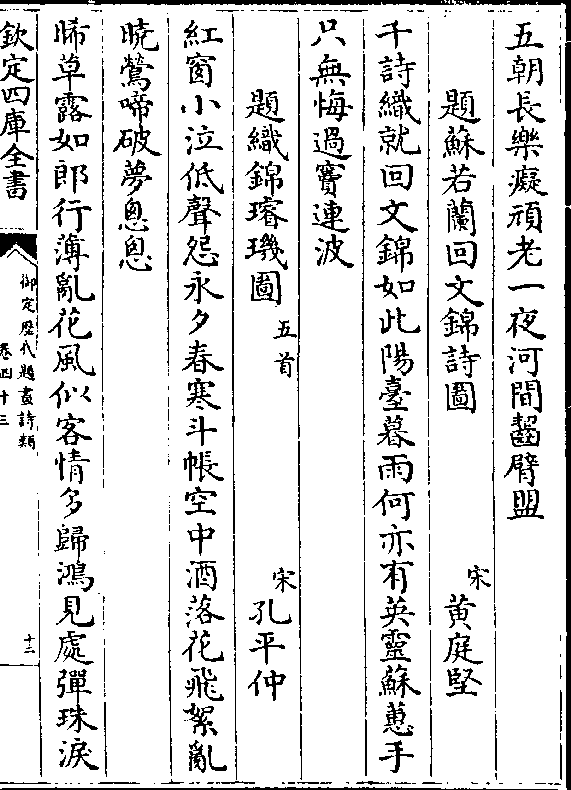 五朝長樂癡頑老一夜河間齧臂盟
題蘇若蘭回文錦詩圖　宋　黄庭堅
千詩織就回文錦如此陽臺暮雨何亦有英靈蘇蕙手
只無悔過竇連波
題織錦璿璣圖　五首　宋　孔平仲
紅窗小泣低聲怨永夕春寒斗帳空中酒落花飛絮亂
曉鶯啼破夢悤悤
晞草露如郎行薄亂花風似客情多歸鴻見處彈珠淚
欽定四庫全書
御定歷代題畫詩類
卷四十三
十二